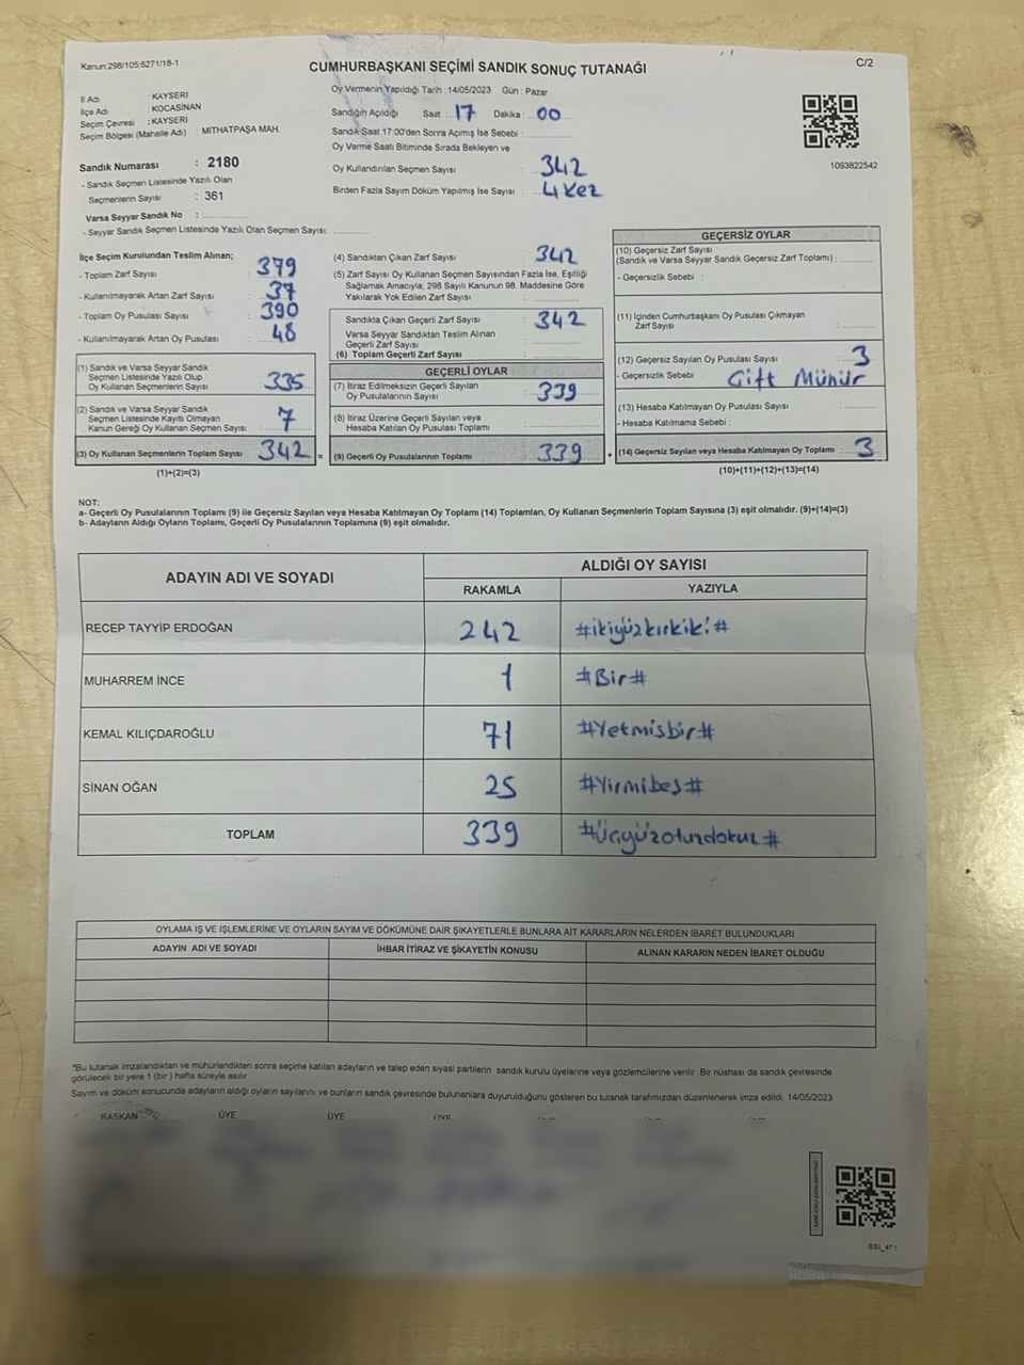 Kanun:298/105;6271/18-1
C/2
CUMHURBAŞKANI SEÇİMİ SANDIK SONUÇ TUTANAĞI
İl Adı : KAYSERİ
İlçe Adı : KOCASİNAN
Seçim Çevresi : KAYSERİ
Seçim Bölgesi (Mahalle Adı) : MİTHATPAŞA MAH.
Sandık Numarası : 2180
- Sandık Seçmen Listesinde Yazılı Olan
Seçmenlerin Sayısı : 361
Varsa Seyyar Sandık No :
- Seyyar Sandık Seçmen Listesinde Yazılı Olan Seçmen Sayısı:
Oy Vermenin Yapıldığı Tarih : 14/05/2023 Gün : Pazar
Sandığın Açıldığı Saat : 17 Dakika : 00
Sandık Saat 17:00'den Sonra Açımış İse Sebebi :
Oy Verme Saati Bitiminde Sırada Bekleyen ve
Oy Kullandırılan Seçmen Sayısı : 342
Birden Fazla Sayım Döküm Yapılmış İse Sayısı : 4 kez
1093822542
İlçe Seçim Kurulundan Teslim Alınan;
- Toplam Zarf Sayısı : 379
- Kullanılmayarak Artan Zarf Sayısı : 37
- Toplam Oy Pusulası Sayısı : 390
- Kullanılmayarak Artan Oy Pusulası : 48
(1) Sandık ve Varsa Seyyar Sandık
Seçmen Listesinde Yazılı Olup
Oy Kullanan Seçmenlerin Sayısı : 335
(2) Sandık ve Varsa Seyyar Sandık
Seçmen Listesinde Kayıtlı Olmayan
Kanun Gereği Oy Kullanan Seçmen Sayısı : 7
(3) Oy Kullanan Seçmenlerin Toplam Sayısı : 342 =
(1)+(2)=(3)
(4) Sandıktan Çıkan Zarf Sayısı : 342
(5) Zarf Sayısı Oy Kullanan Seçmen Sayısından Fazla İse, Eşitliği
Sağlamak Amacıyla, 298 Sayılı Kanunun 98. Maddesine Göre
Yakılarak Yok Edilen Zarf Sayısı :
Sandıkta Çıkan Geçerli Zarf Sayısı : 342
Varsa Seyyar Sandıktan Teslim Alınan
Geçerli Zarf Sayısı
(6) Toplam Geçerli Zarf Sayısı :
GEÇERLİ OYLAR
(7) İtiraz Edilmeksizin Geçerli Sayılan
Oy Pusulalarının Sayısı : 339
(8) İtiraz Üzerine Geçerli Sayılan veya
Hesaba Katılan Oy Pusulası Toplamı :
(9) Geçerli Oy Pusulalarının Toplamı : 339 +
GEÇERSİZ OYLAR
(10) Geçersiz Zarf Sayısı
(Sandık ve Varsa Seyyar Sandık Geçersiz Zarf Toplamı) :
- Geçersizlik Sebebi :
(11) İçinden Cumhurbaşkanı Oy Pusulası Çıkmayan
Zarf Sayısı :
(12) Geçersiz Sayılan Oy Pusulası Sayısı : 3
- Geçersizlik Sebebi : Çift Mühür
(13) Hesaba Katılmayan Oy Pusulası Sayısı :
- Hesaba Katılmama Sebebi :
(14) Geçersiz Sayılan veya Hesaba Katılmayan Oy Toplamı : 3
(10)+(11)+(12)+(13)=(14)
NOT:
a- Geçerli Oy Pusulalarının Toplamı (9) ile Geçersiz Sayılan veya Hesaba Katılmayan Oy Toplamı (14) Toplamları, Oy Kullanan Seçmenlerin Toplam Sayısına (3) eşit olmalıdır. (9)+(14)=(3)
b- Adayların Aldığı Oyların Toplamı, Geçerli Oy Pusulalarının Toplamına (9) eşit olmalıdır.
ADAYIN ADI VE SOYADI ALDIĞI OY SAYISI
RAKAMLA YAZIYLA
RECEP TAYYİP ERDOĞAN 242 #ikiyüzkırkiki#
MUHARREM İNCE 1 #Bir#
KEMAL KILIÇDAROĞLU 71 #Yetmisbir#
SİNAN OĞAN 25 #Yirmibeş#
TOPLAM 339 #Üçyüzotuzdokuz#
OYLAMA İŞ VE İŞLEMLERİNE VE OYLARIN SAYIM VE DÖKÜMÜNE DAİR ŞİKAYETLERLE BUNLARA AİT KARARLARIN NELERDEN İBARET BULUNDUKLARI
ADAYIN ADI VE SOYADI İHBAR İTİRAZ VE ŞİKAYETİN KONUSU ALINAN KARARIN NEDEN İBARET OLDUĞU
*Bu tutanak imzalandıktan ve mühürlendikten sonra seçime katılan adayların ve talep eden siyasi partilerin sandık kurulu üyelerine veya gözlemcilerine verilir. Bir nüshası da sandık çevresinde
görülecek bir yere 1 (bir) hafta süreyle asılır.
Sayım ve döküm sonucunda adayların aldığı oyların sayılarını ve bunların sandık çevresinde bulunanlara duyurulduğunu gösteren bu tutanak tarafımızdan düzenlenerek imza edildi. 14/05/2023
BAŞKAN ÜYE ÜYE